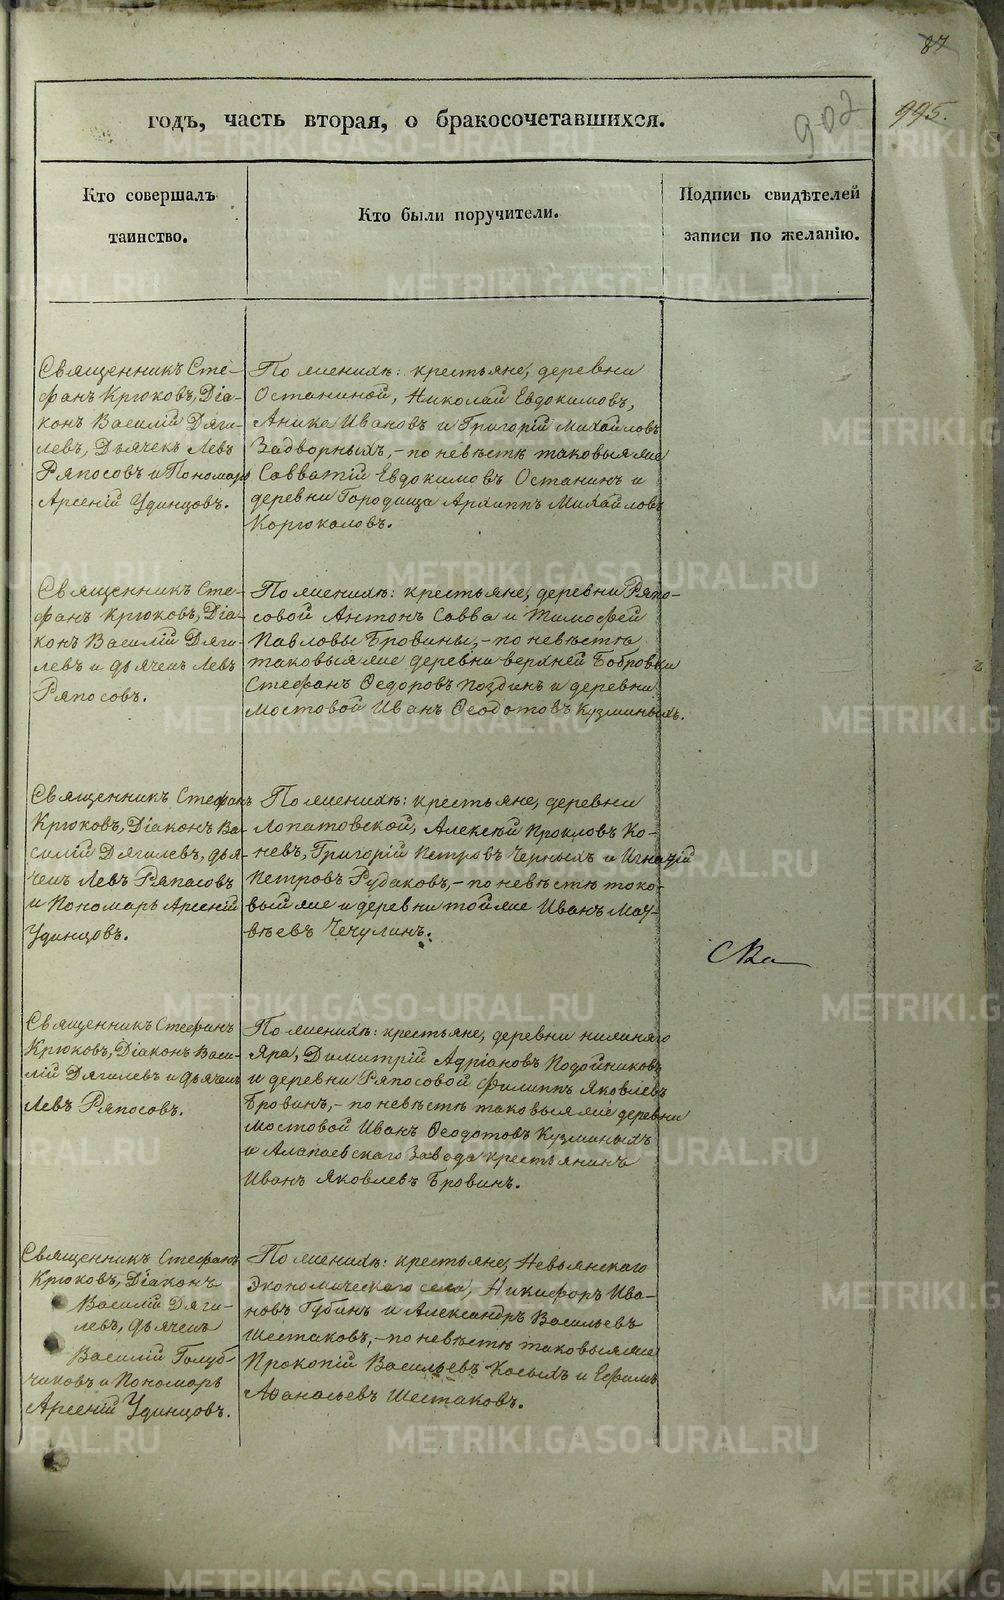 87
995.
902
годъ, часть вторая, о бракосочетавшихся.
Кто совершалъ
таинство.
Кто были поручители.
Подпись свидѣтелей
записи по желанію.
Священникъ Сте-
фанъ Крюковъ, Діа-
конъ Василій Дяги-
левъ, Дьячекъ Левъ
Ряпосовъ и Пономарь
Арсеній Удинцовъ.
По женихѣ: крестьяне, деревни
Останиной, Николай Евдокимовъ,
Аника Ивановъ и Григорій Михайловъ
Задворныхъ, – по невѣстѣ таковыя же
Савватій Евдокимовъ Останинъ и
деревни Городища Архиппъ Михайловъ
Коргоколовъ.
Священникъ Сте-
фанъ Крюковъ, Діа-
конъ Василій Дяги-
левъ и дьячекъ Левъ
Ряпосовъ.
По женихѣ: крестьяне, деревни Ряпо-
совой Антонъ Савва и Тимофей
Павловы Бровины, – по невѣстѣ
таковыя же деревни верхней Бобровки
Стефанъ Ѳедоровъ Поздинъ и деревни
Мостовой Иванъ Ѳеодотовъ Кузминыхъ.
Священникъ Стефанъ
Крюковъ, Діаконъ Ва-
силій Дягилевъ, дья-
чекъ Левъ Ряпасовъ
и Пономарь Арсеній
Удинцовъ.
По женихѣ: крестьяне, деревни
Лопатовской, Алексѣй Прокловъ Ко-
невъ, Григорій Петровъ Черныхъ и Игнатій
Петровъ Рудаковъ, – по невѣстѣ тако-
вый же и деревни той же Иванъ Мат-
вѣевъ Чечулинъ.
Священникъ Стефанъ
Крюковъ, Діаконъ Васи-
лій Дягилевъ и дьячекъ
Левъ Ряпосовъ.
По женихѣ: крестьяне, деревни нижняго
Яра, Димитрій Адріановъ Подойниковъ
и деревни Ряпосовой Филиппъ Яковлевъ
Бровинъ, – по невѣстѣ таковыя же деревни
Мостовой Иванъ Ѳеодотовъ Кузминыхъ
и Алапаевскаго Завода крестьянинъ
Иванъ Яковлевъ Бровинъ.
Священникъ Стефанъ
Крюковъ, Діаконъ
Василій Дяги-
левъ, дьячекъ
Василій Голуб-
чиковъ и Пономарь
Арсеній Удинцовъ.
По женихѣ: крестьяне, Невьянскаго
Экономическаго села, Никифоръ Ива-
новъ Губинъ и Александръ Васильевъ
Шестаковъ, – по невѣстѣ таковыя же
Прокопій Васильевъ Косыхъ и Ефимъ
Аѳанасьевъ Шестаковъ.
METRIKI.GASO-URAL.RU